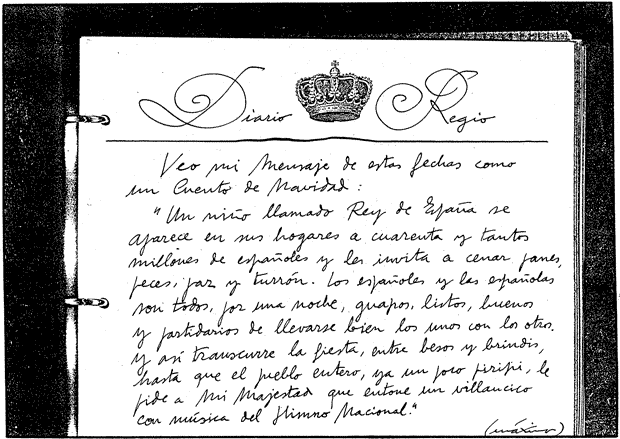 Diario Regio
Veo mi Mensaje de estas fechas como
un Cuento de Navidad:
"Un niño llamado Rey de España se
aparece en sus hogares a cuarenta y tantos
millones de españoles y les invita a cenar panes,
peces, paz y turrón. Los españoles y las españolas
son todos, por una noche, guapos, listos, buenos
y partidarios de llevarse bien los unos con los otros.
y así transcurre la fiesta, entre besos y brindis,
hasta que el pueblo entero, ya un poco piripi, le
pide a Mi Majestad que entone un villancico
con música del Himno Nacional."
(máximo)